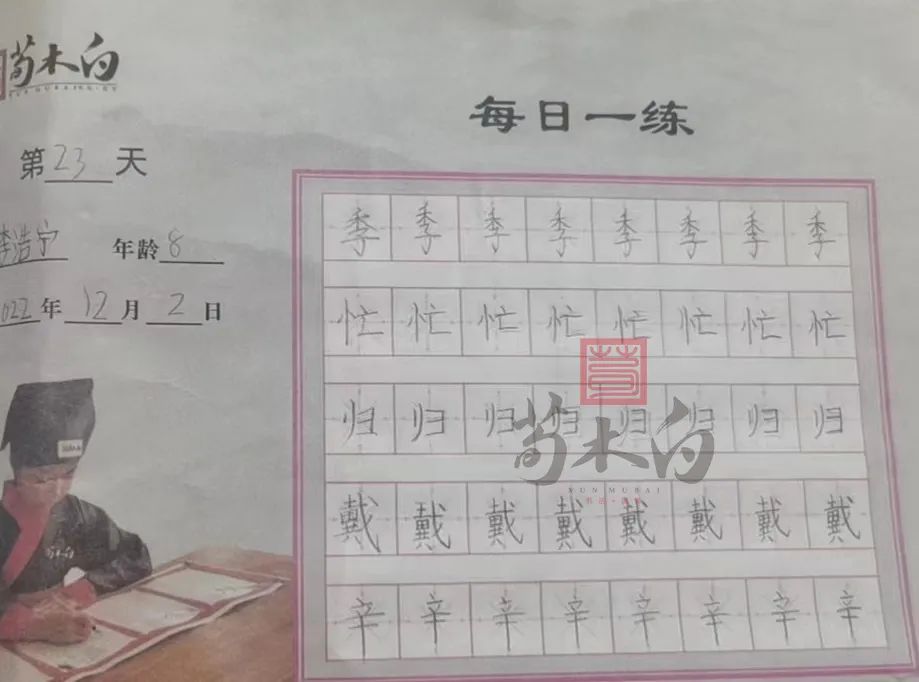 荀木白
每日一练
第23天
李浩宁 年龄8
2022年12月2日
季季季季季季季季
忙忙忙忙忙忙忙忙
归归归归归归归归
荀木白
XUN MUBAI
戴戴戴戴戴戴戴戴
辛辛辛辛辛辛辛辛